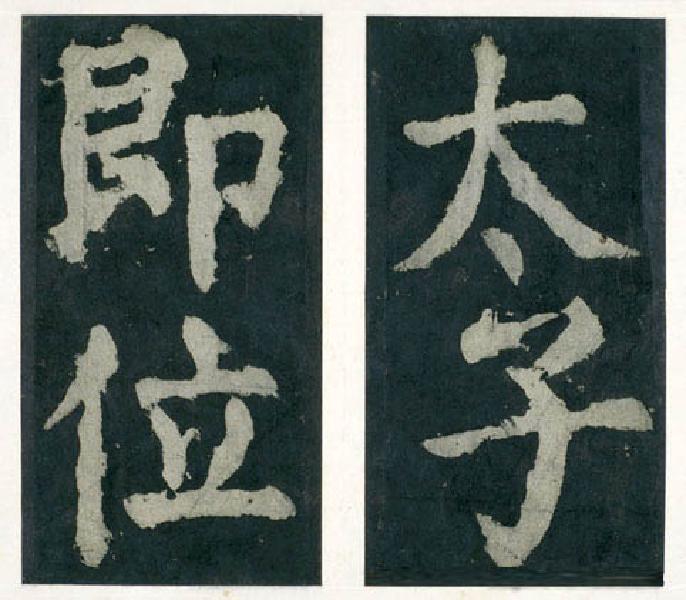 太子
即位